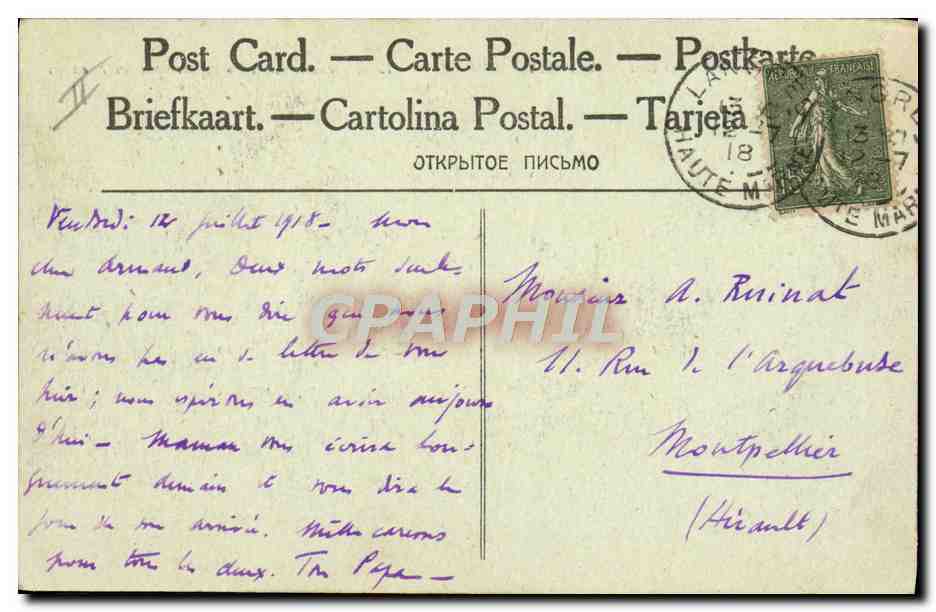 Post Card. — Carte Postale. — Postkarte
Briefkaart. — Cartolina Postal. — Tarjeta
ОТКРЫТОЕ ПИСЬМО
RÉPUBLIQUE FRANÇAISE
18
HAUTE MARNE
II
Vendredi 12 juillet 1918 — mon
cher Armand, Deux mots seule-
ment pour vous dire que nous
n'avons pas eu de lettre de vous
hier; nous espérons en avoir aujour
d'hui — Maman vous écrira lon-
guement demain et vous dira le
jour de son arrivée. Mille caresses
pour tous les deux. Ton Papa —
Monsieur A. Ruinat
11. Rue de l'Arquebuse
Montpellier
(Hérault)
CPAPHIL